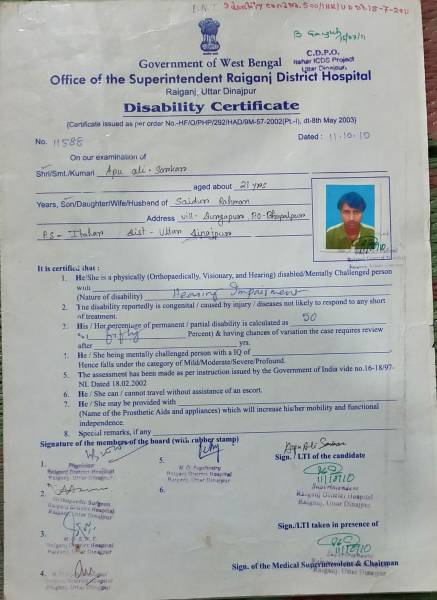 B. Gayen
16/03/11
C.D.P.O.
Itahar ICDS Project
Uttar Dinajpur.
Government of West Bengal
Office of the Superintendent Raiganj District Hospital
Raiganj, Uttar Dinajpur
Disability Certificate
(Certificate issued as per order No.-HF/O/PHP/292/HAD/9M-57-2002(Pt.-I), dt-8th May 2003)
No. 11588
Dated : 11.10.10
On our examination of
Shri/Smt./Kumari Apu Ali Sarkar
aged about 21 yrs
Years, Son/Daughter/Wife/Husband of Saidur Rahman
Address vill- PO-Bhupalpur
P.S- Itahar Dist- Uttar Dinajpur
It is certified that :
1. He/She is a physically (Orthopaedically, Visionary, and Hearing) disabled/Mentally Challenged person
with Hearing Impairment
(Nature of disability)
2. The disability reportedly is congenital / caused by injury / diseases not likely to respond to any short
of treatment.
3. His / Her percentage of permanent / partial disability is calculated as 50
% ( fifty Percent) & having chances of variation the case requires review
after yrs.
4. He / She being mentally challenged person with a IQ of
Hence falls under the category of Mild/Moderate/Severe/Profound.
5. The assessment has been made as per instruction issued by the Government of India vide no.16-18/97-
NI. Dated 18.02.2002
6. He / She can / cannot travel without assistance of an escort.
7. He / She may be provided with
(Name of the Prosthetic Aids and appliances) which will increase his/her mobility and functional
independence.
8. Special remarks, if any
Signature of the members of the board (with rubber stamp)
Apu Ali Sarkar
Sign. / LTI of the candidate
1. Physician
Raiganj District Hospital
Raiganj, Uttar Dinajpur
5.
M. O. Psychiatry
Raiganj District Hospital
Raiganj, Uttar Dinajpur
11/10/10
Superintendent
Raiganj District Hospital
Raiganj, Uttar Dinajpur
2.
Orthopaedic Surgeon
Raiganj District Hospital
Raiganj, Uttar Dinajpur
6.
Sign./LTI taken in presence of
3.
Raiganj District Hospital
Raiganj, Uttar Dinajpur
11/10/10
Raiganj, Uttar Dinajpur
4.
Raiganj, Uttar Dinajpur
Sign. of the Medical Superintendent & Chairman